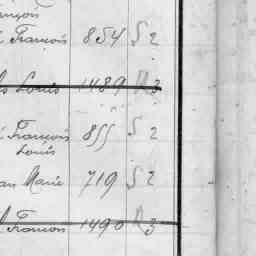 ançois
François 854 S 2
Louis 1489 R 3
François 855 S 2
Louis
Marie 719 S 2
François 1490 R 3